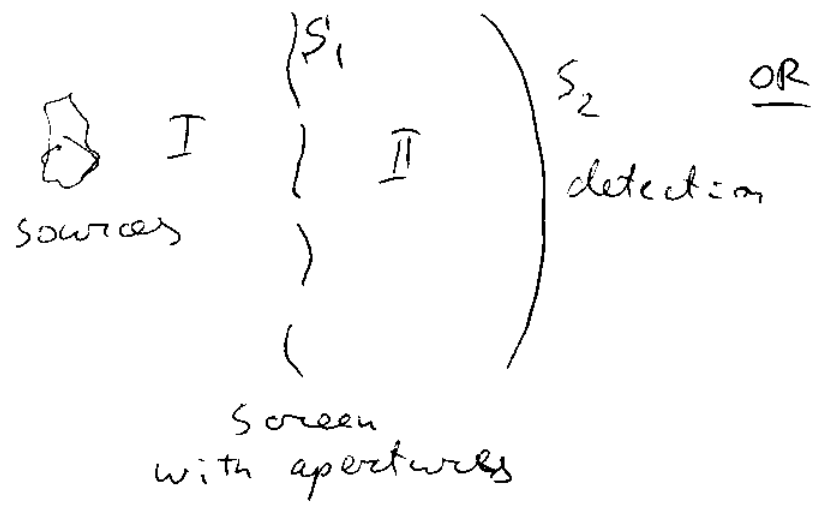 S₁
S₂
OR
I
II
detection
sources
screen
with apertures